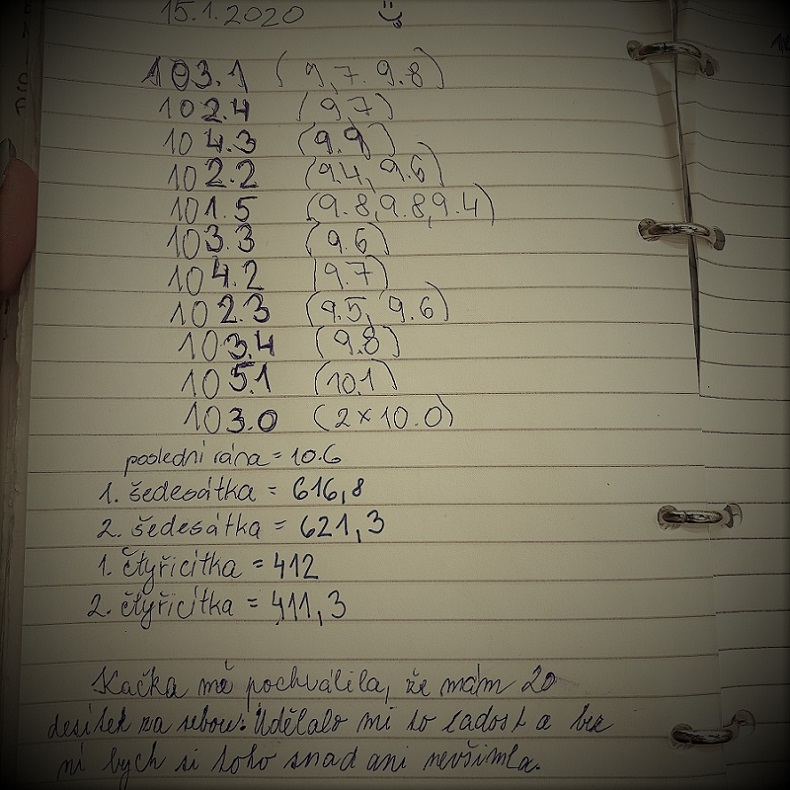 15.1.2020
103.1 (9,7. 9.8)
102.4 (9,7)
104.3 (9.9)
102.2 (9.4, 9.6)
101.5 (9.8,9.8,9.4)
103.3 (9.6)
104.2 (9.7)
102.3 (9.5, 9.6)
103.4 (9.8)
105.1 (10.1)
103.0 (2×10.0)
poslední rána = 10.6
1. šedesátka = 616,8
2. šedesátka = 621,3
1. čtyřicítka = 412
2. čtyřicítka = 411,3
Kačka mě pochválila, že mám 20
desítek za sebou. Udělalo mi to radost a bez
ní bych si toho snad ani nevšimla.